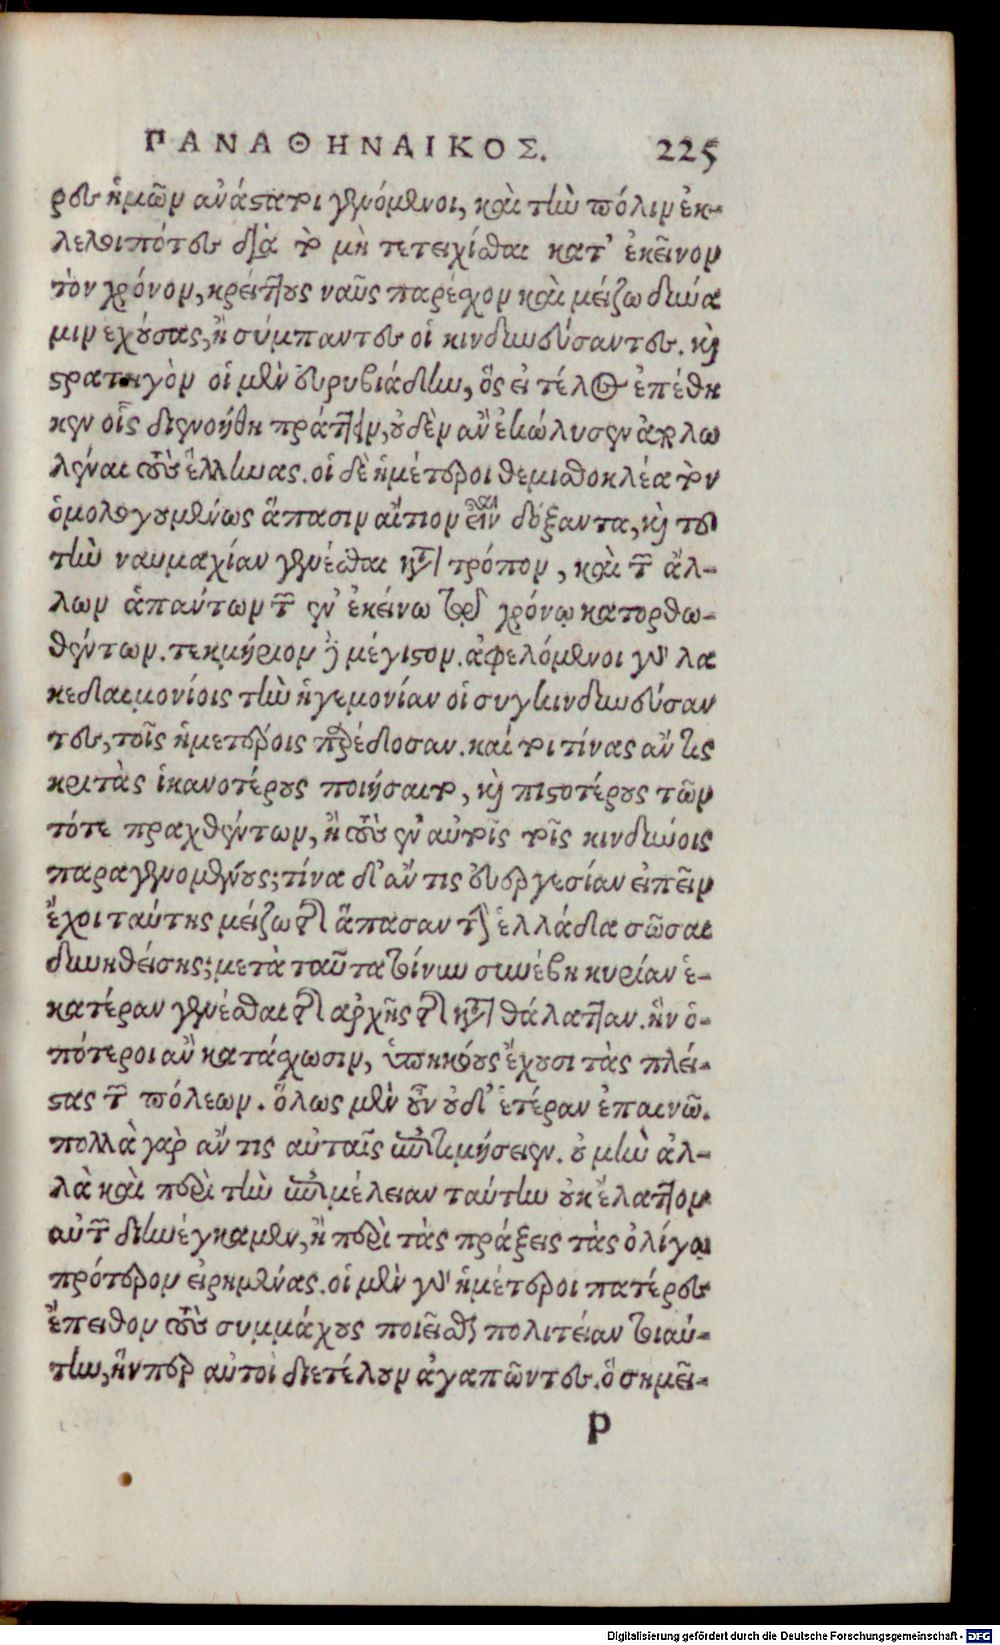 ΠΑΝΑΘΗΝΑΙΚΟΣ. 225
ρες ἡμῶν ἀνάστατοι γενόμενοι, καὶ τὴν πόλιν ἐκ-
λελοιπότες διὰ τὸ μὴ τετειχίσθαι κατ' ἐκεῖνον
τὸν χρόνον, κρείττους ναῦς παρέσχον καὶ μείζω δύνα
μιν ἐχούσας, ἢ σύμπαντες οἱ κινδυνεύσαντες. καὶ
στρατηγὸν οἱ μὲν εὐρυβιάδην, ὃς εἰ τέλος ἐπέθη
κεν οἷς διενοήθη πράττειν, οὐδὲν ἂν ἐκώλυσεν ἀπολω
λέναι τοὺς ἕλληνας. οἱ δὲ ἡμέτεροι θεμισθοκλέα τὸν
ὁμολογουμένως ἅπασιν αἴτιον εἶναι δόξαντα, καὶ τοῦ
τὴν ναυμαχίαν γενέσθαι κατὰ τρόπον, καὶ τῶν ἄλ-
λων ἁπάντων τῶν ἐν ἐκείνω τῷ χρόνῳ κατορθω-
θέντων. τεκμήριον δὲ μέγιστον. ἀφελόμενοι γὰρ λα
κεδαιμονίοις τὴν ἡγεμονίαν οἱ συγκινδυνεύσαν
τες, τοῖς ἡμετέροις παρέδοσαν. καί τοι τίνας ἄν τις
κριτὰς ἱκανοτέρους ποιήσαιτο, καὶ πιστοτέρους τῶν
τότε πραχθέντων, ἢ τοὺς ἐν αὐτοῖς τοῖς κινδύνοις
παραγενομένους; τίνα δ' ἄν τις εὐεργεσίαν εἰπεῖν
ἔχοι ταύτης μείζω τῆς ἅπασαν τὴν ἑλλάδα σῶσαι
δυνηθείσης; μετὰ ταῦτα τοίνυν συνέβη κυρίαν ἑ-
κατέραν γενέσθαι τῆς ἀρχῆς τῆς κατὰ θάλατταν. ἣν ὁ-
πότεροι ἂν κατάσχωσιν, ὑπηκόους ἔχουσι τὰς πλεί-
στας τῶν πόλεων. ὅλως μὲν οὖν οὐδ' ἑτέραν ἐπαινῶ.
πολλὰ γὰρ ἄν τις αὐταῖς ἐπιτιμήσειεν. οὐ μὴν ἀλ-
λὰ καὶ περὶ τὴν ἐπιμέλειαν ταύτην οὐκ ἔλαττον
αὐτῶν διηνέγκαμεν, ἢ περὶ τὰς πράξεις τὰς ὀλίγον
πρότερον εἰρημένας. οἱ μὲν γὰρ ἡμέτεροι πατέρες
ἔπειθον τοὺς συμμάχους ποιεῖσθαι πολιτείαν τοιαύ-
την, ἥνπερ αὐτοὶ διετέλουν ἀγαπῶντες. ὃ σημεῖ-
P
Digitalisierung gefördert durch die Deutsche Forschungsgemeinschaft - DFG